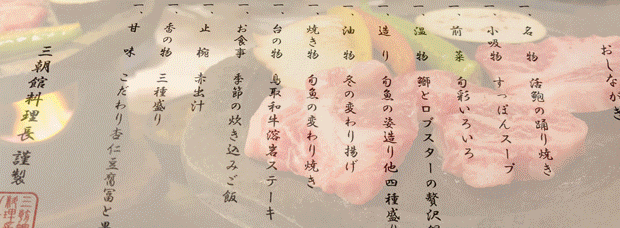 おしながき
一、名物 活鮑の踊り焼き
一、小吸物 すっぽんスープ
一、前菜 旬彩いろいろ
一、温物 鰤とロブスターの贅沢
一、造り 旬魚の姿造り他四種盛り
一、油物 冬の変わり揚げ
一、焼き物 旬魚の変わり焼き
一、台の物 鳥取和牛溶岩ステーキ
一、お食事 季節の炊き込みご飯
一、止椀 赤出汁
一、香の物 三種盛り
一、甘味 こだわり杏仁豆腐冨と
三朝館料理長 謹製